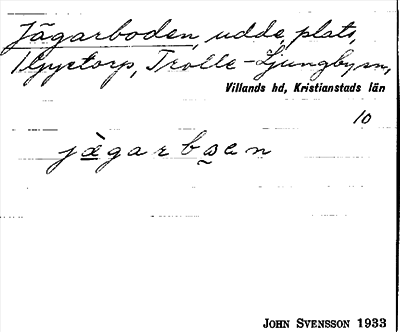 Jägarboden, udde, plats,
Gyetorp, Trolle-Ljungby sn,
Villands hd, Kristianstads län
10
jägarboen
JOHN SVENSSON 1933